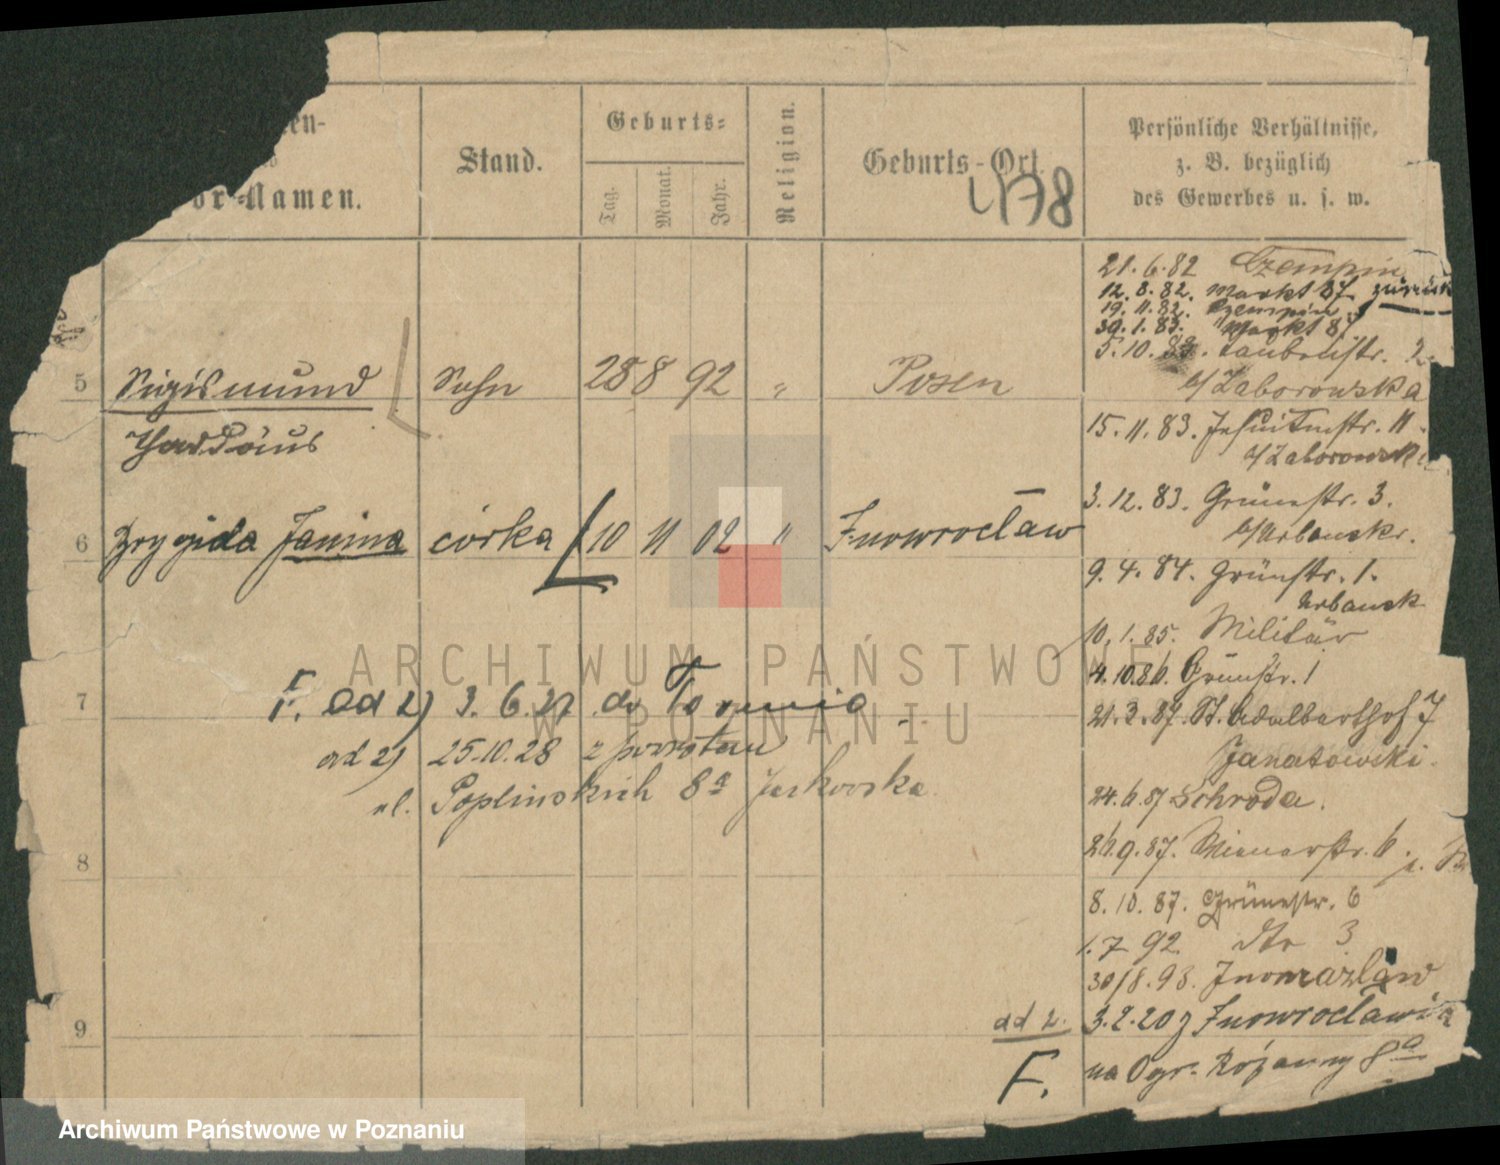 en-
or-Namen.
Stand.
Geburts-
Tag.
Monat.
Jahr.
Religion.
Geburts-Ort.
478
Persönliche Verhältnisse,
z. B. bezüglich
des Gewerbes u. s. w.
21.6.82 Czempin
12.8.82. Markt 87 zurück
19.11.82. Czempin
30.1.83. Markt 87
5.10.83. Taubenstr. 2
b/Zaborowska
5 Sigismund Sohn 28 8 92 " Posen
Thaddäus
15.11.83. Jesuitenstr. 11.
b/Zaborowsk
3.12.83. Grünestr. 3.
b/Urbanski.
6 Brygida Janina córka 10 11 02 " Inowrocław
9.4.84. Grünstr. 1.
Urbansk
10.1.85. Militär
4.10.86. Grünstr. 1
7 F. ad 2) 3.6.27 do Torunia
21.3.87. St. Adalberthof 7
Janatowski.
ad 2) 25.10.28 z powrotem
ul. Poplinskich 8a
24.6.87 Schroda.
8
26.9.87. Wienerstr. 6.
8.10.87. Grünestr. 6
1.7 92 dto 3
30/8.93. Inowrazlaw
9
ad 2. 3.2.20 z Inowrocławia
F. na Ogr. Różanny 8a
ARCHIWUM PAŃSTWOWE
W POZNANIU
Archiwum Państwowe w Poznaniu